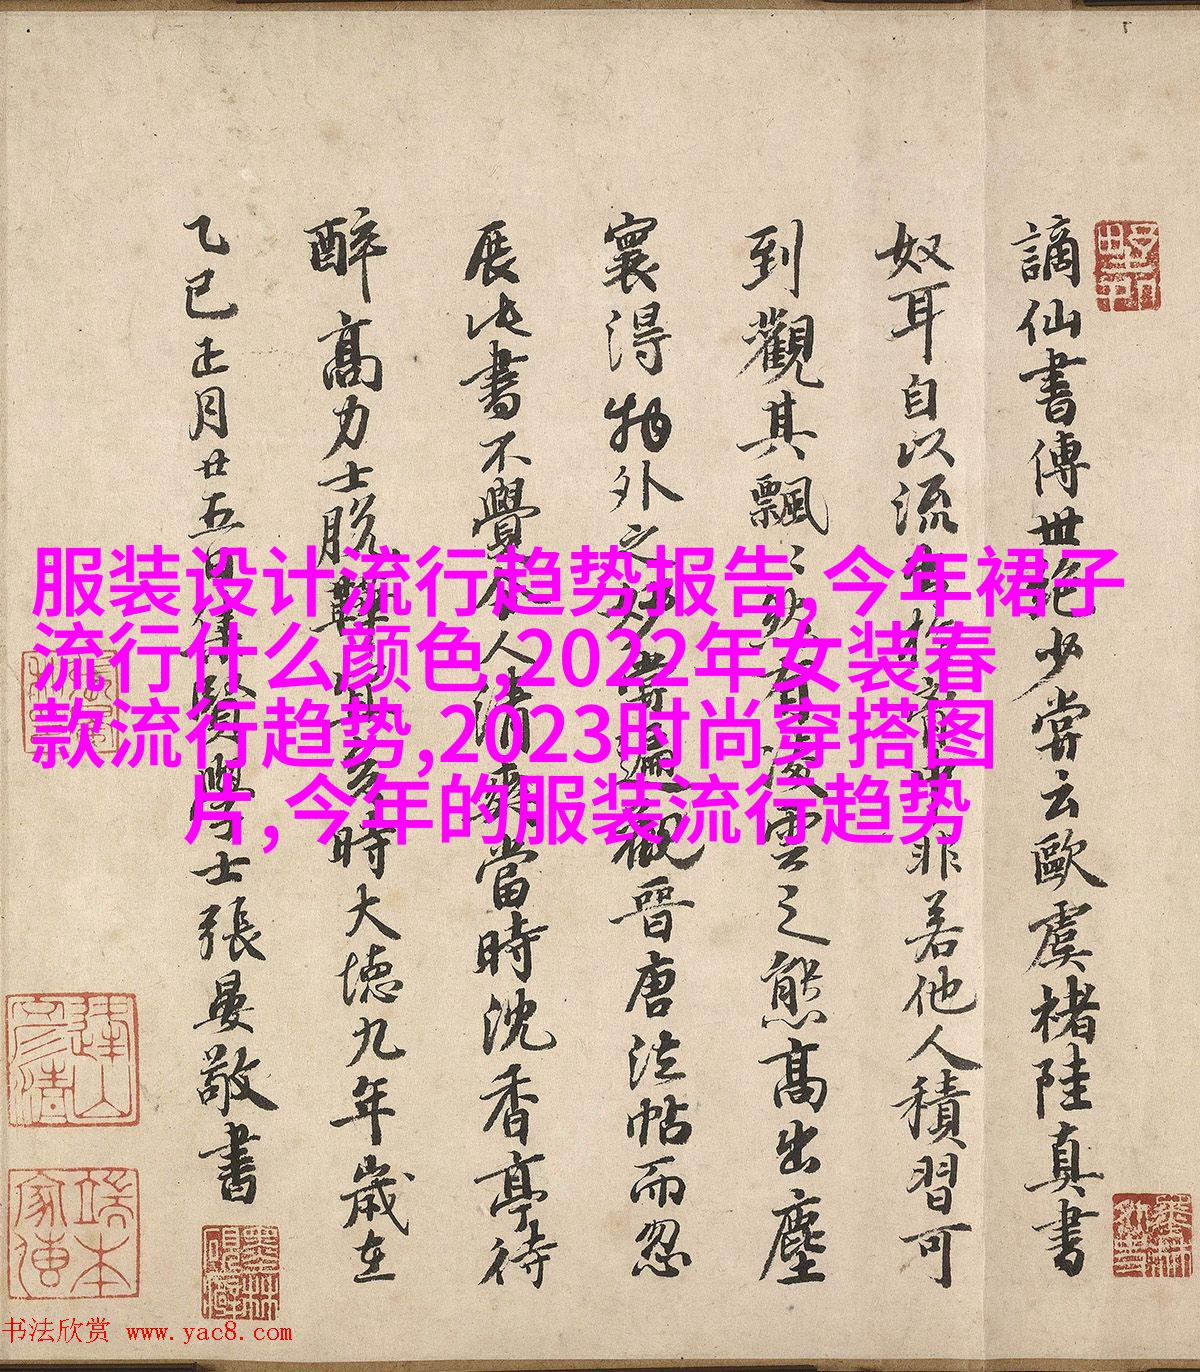 謫仙書傳世絕少嘗云歐虞褚陸真書
奴耳自以流非若他人積習可
到觀其飄〻然有凌雲之態高出塵
寰得物外之妙嘗遍觀晉唐法帖而忽
展此書不覺令人清爽當時沈香亭待
醉高力士脫靴時大德九年歲在
乙巳正月廿五日集賢學士張晏敬書
端本家傳
服装设计流行趋势报告,今年裙子
流行什么颜色,2022年女装春
款流行趋势,2023时尚穿搭图
片,今年的服装流行趋势
书法欣赏 www.yac8.com